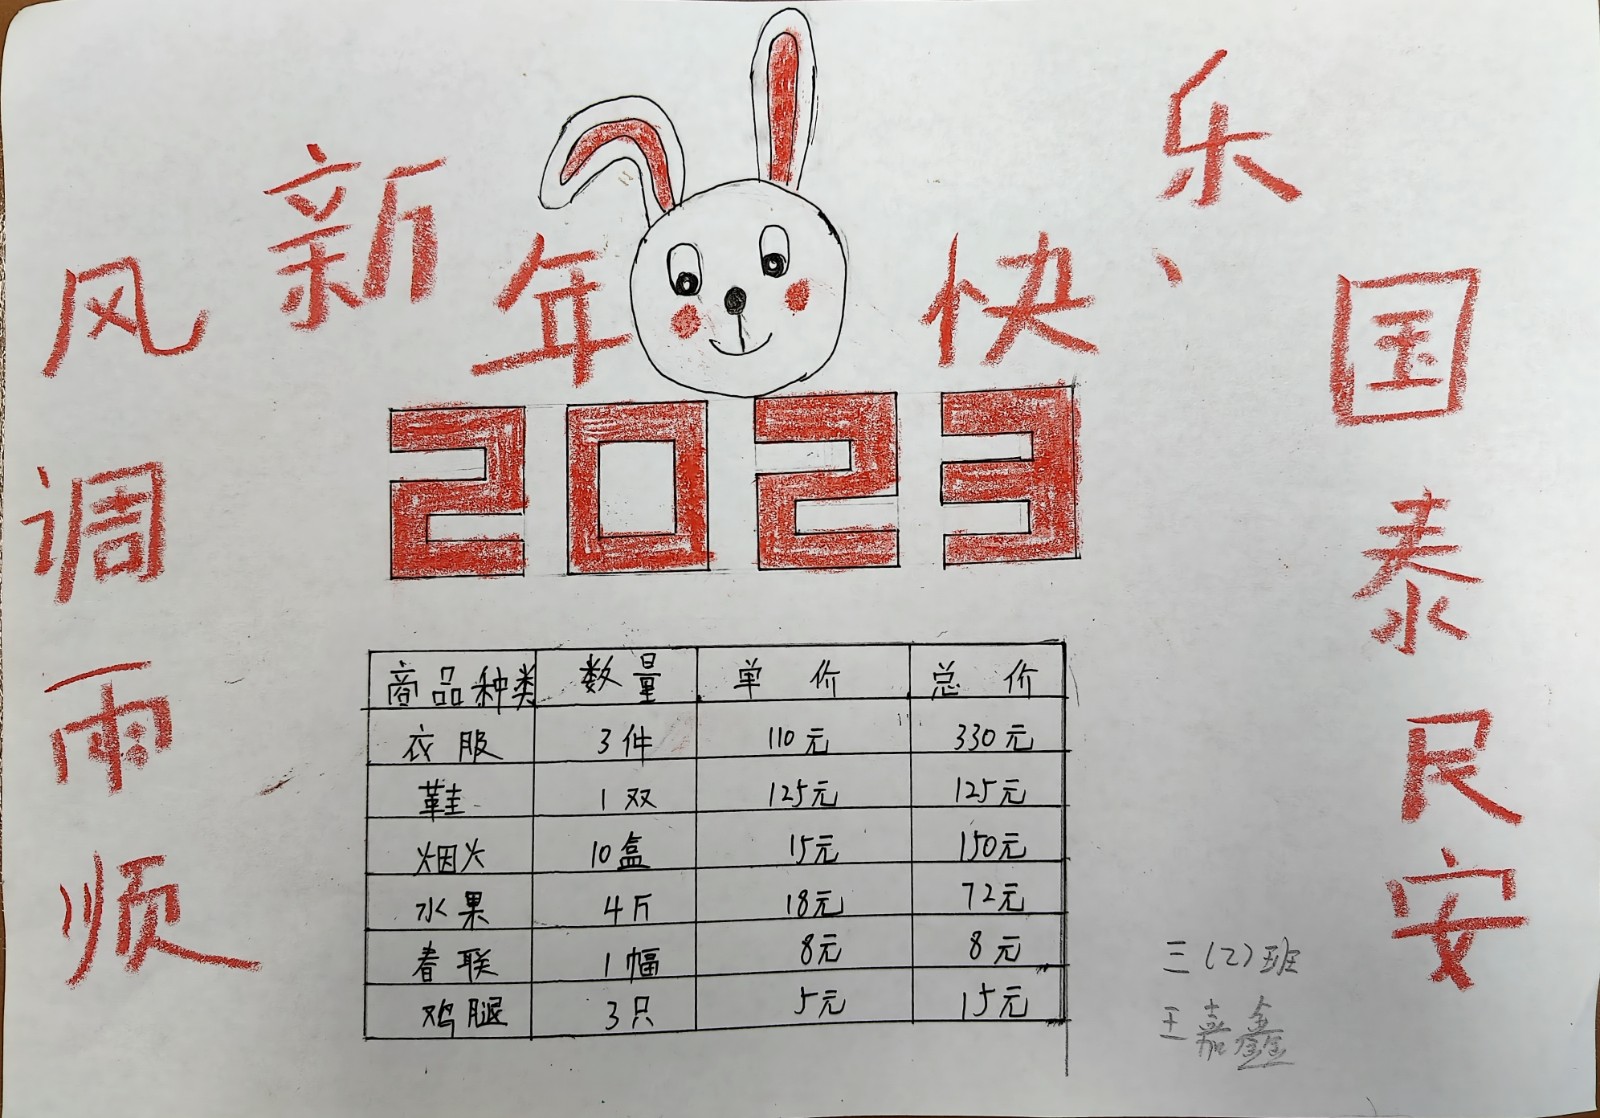 新年快乐
风调雨顺
国泰民安
2023
商品种类 数量 单价 总价
衣服 3件 110元 330元
鞋 1双 125元 125元
烟火 10盒 15元 150元
水果 4斤 18元 72元
春联 1幅 8元 8元
鸡腿 3只 5元 15元
三(2)班
王嘉鑫